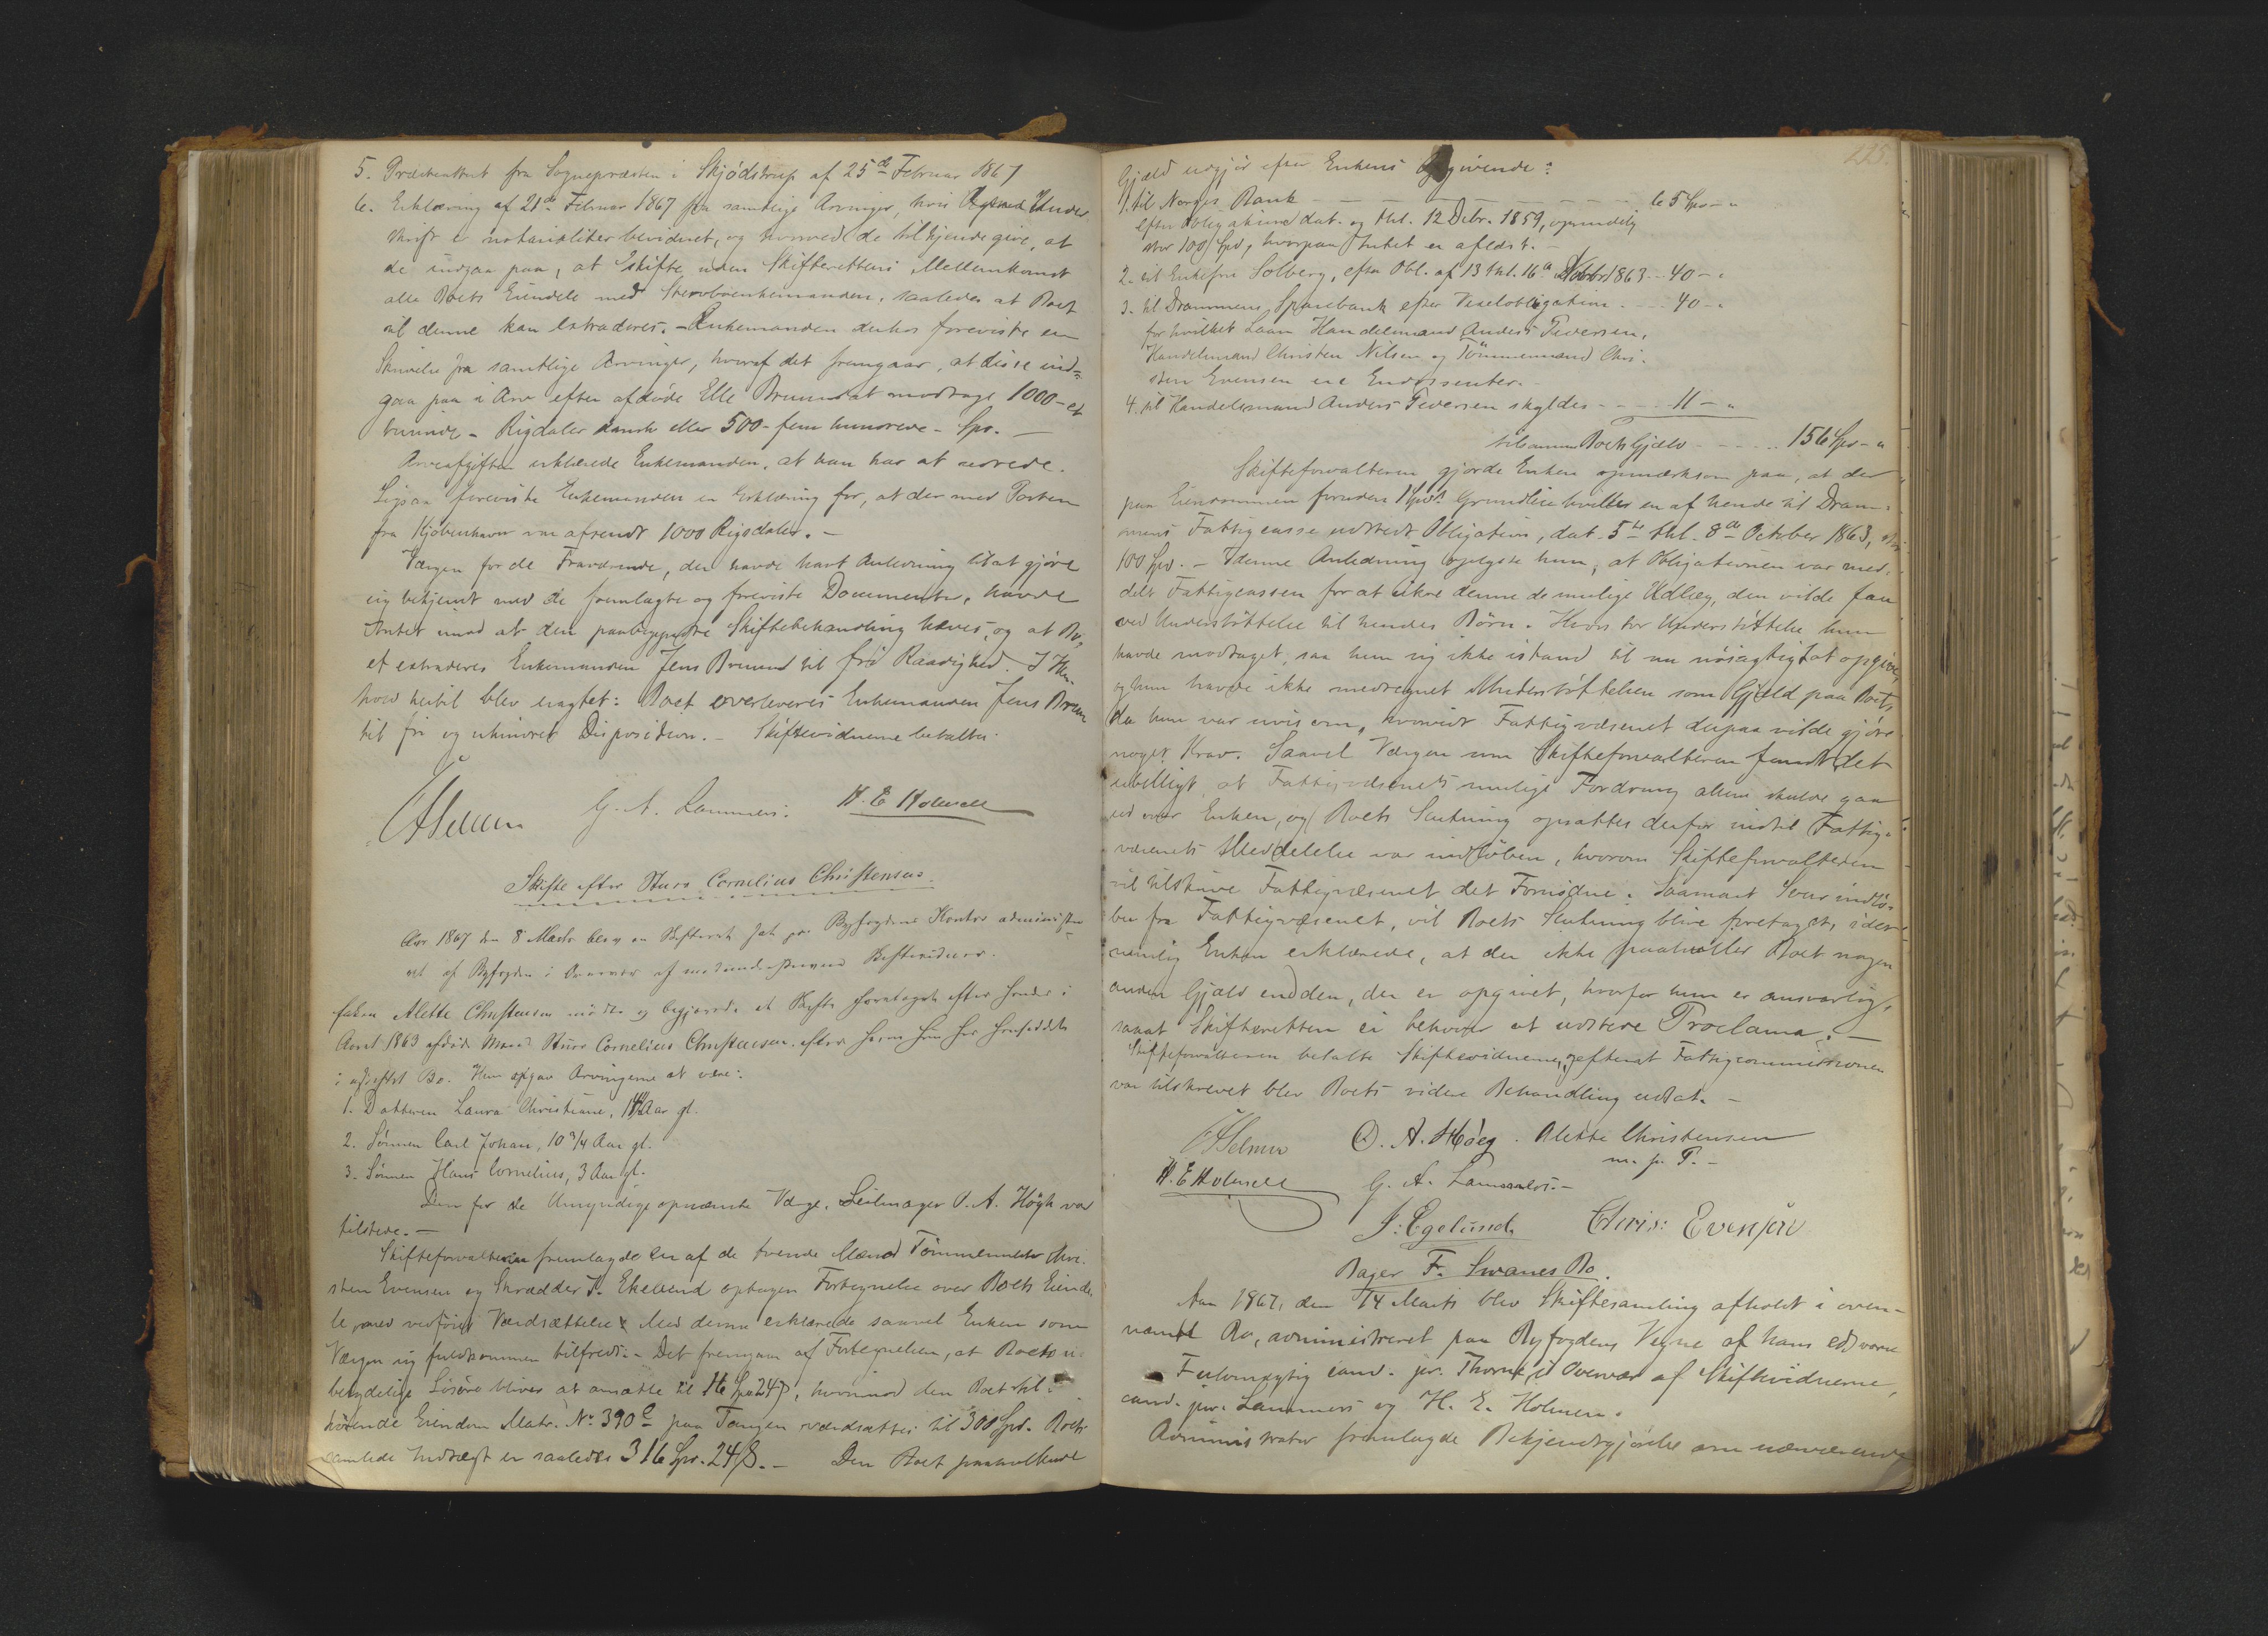 5. Præsteattest fra Sognepræsten i Skjödstrup af 25de Februar 1867
6. Erklæring af 21de Februar 1867 fra samtlige Arvinger, hvis Under-
skrift er notarialiter bevidnet, og hvorved de tilkjendegive, at
de indgaa paa, at Eskifte uden Skifterettens Mellemkomst
alle Boets Eiendele med Stervboenkemanden, saaledes at Boet
til denne kan extraderes. - Enkemanden derhos foreviste en
Skrivelse fra samtlige Arvinger, hvoraf det fremgaar, at disse ind-
gaa paa i Arv efter afdöde Elle Bruun at modtage 1000 - et
tusinde - Rigdaler dansk eller 500 - fem hundrede - Spd. -
Arveafgiften erklærede Enkemanden, at han har at udrede.
Ligesaa foreviste Enkemanden en Erklæring for, at der med Posten
fra Kjöbenhavn var afsendt 1000 Rigsdaler. -
Værgen for de Fraværende, der havde havt Anledning til at gjöre
sig bekjendt med de fremlagte og foreviste Documenter, havde
Intet imod at den paabegyndte Skiftebehandling hæves, og at Bo-
et extraderes Enkemanden Jens Bruun til fri Raadighed. I Hen-
hold hertil blev eragtet: Boet overleveres Enkemanden Jens Bruun
til fri og uhindret Disposition. - Skiftevidnerne betaltes.
G. A. Lammers. H. E. Holmsen
Skifte efter Sturs Cornelius Christensen.
Aar 1867 den 8 Marts blev en Skifteret sat paa Byfogdens Kontor administre-
ret af Byfogden i Overvær af medunderskrevne Skiftevidner.
Enken Alette Christensen mödte og begjærede et Skifte foretaget efter hendes i
Aaret 1863 afdöde Mand Sturs Cornelius Christensen. efter hvem hun har hensiddet
i uskiftet Bo. Hun opgav Arvingerne at være:
1. Datteren Laura Christiane, 14 Aar gl.
2. Sönnen Carl Johan, 10 3/4 Aar gl.
3. Sönnen Hans Cornelius, 3 Aar gl.
Den for de Umyndige opnævnte Værge, Seilmager O. A. Högh var
tilstede. -
Skifteforvalteren fremlagde en af de tvende Mænd Tömmermester Chri-
sten Evensen og Skrædder J. Ekelund optagen Fortegnelse over Boets Eiende-
le med vedföiet Værdsættelse. Med denne erklærede saavel Enken som
Værgen sig fuldkommen tilfreds. - Det fremgaar af Fortegnelsen, at Boets u-
betydelige Lösöre bliver at ansætte til 16 Spd 24 ß, hvorimod den Boet til-
hörende Eiendom Matr. No 390 c paa Tangen værdsættes til 300 Spd. Boets
samlede Indtægt er saaledes 316 Spd. 24 ß. - Den Boet paahvilende
225.
Gjæld udgjör efter Enkens Opgivende:
1. til Norges Bank - - - - - - 65 Spd - "
efter Obligation dat. og thl. 12 Debr. 1859, oprindelig
stor 100 Spd, hvorpaa Intet er afledst. -
2. til Enkefru Solberg, efter Obl. af 13 thl. 16de Novbr 1863 - 40 - "
3. til Drammens Sparebank efter Vexelobligation - - 40 - "
for hvilket Laan Handelsmand Anders Pedersen,
Handelsmand Christen Nilsen og Tömmermand Chri-
sten Evensen ere Endossenter.
4. til Handelsmand Anders Pedersen skyldes - - - 11 - "
tilsammen Boets Gjæld - - - 156 Spd - "
Skifteforvalteren gjorde Enken opmærksom paa, at der
paa Eiendommen foruden 1 Spds Grundleie hviler en af hende til Dram-
mens Fattigcasse udstedt Obligation, dat. 5te thl. 8de October 1863, stor
100 Spd. - I denne Anledning oplyste hun, at Obligationen var med-
delt Fattigcassen for at sikre denne de mulige Udlæg, den vilde faa
ved Understöttelse til hendes Börn. Hvor stor Understöttelse hun
havde modtaget, saa hun sig ikke istand til nu nöiagtigt at opgive,
og hun havde ikke medregnet Understöttelsen som Gjæld paa Boet,
da hun var uvis om, hvorvidt Fattigvæsenet derpaa vilde gjöre
noget Krav. Saavel Værgen som Skifteforvalteren fandt det
ubilligt, at Fattigvæsenets mulige Fordring alene skulde gaa
ud over Enken, og Boets Slutning opsattes derfor indtil Fattig-
væsenets Meddelelse var indlöben, hvorom Skifteforvalteren
vil tilskrive Fattigvæsenet det Fornödne. Saasnart Svar indlö-
ber fra Fattigvæsenet, vil Boets Slutning blive foretaget, ider
nemlig Enken erklærede, at der ikke paahviler Boet nogen
anden Gjæld end den, der er opgivet, hvorfor hun er ansvarlig,
samt Skifteretten ei behöver at udstede Proclama. -
Skifteforvalteren betalte Skiftevidnerne, og efterat Fattigcommissionen
var tilskrevet blev Boets videre Behandling udsat. -
O. A. Höeg. Alette Christensen
m. p. P. -
H. E Holmsen G. A. Lammers. -
J. Egelund Chris: Evensen
Bager F. Swanes Bo.
Aar 1867, den 14 Marts blev Skiftesamling afholdt i oven-
nævnte Bo, administreret paa Byfogdens Vegne af hans edsvorne
Fuldmægtig cand. jur. Thorne i Overvær af Skiftevidnerne,
cand. jur. Lammers og H. E. Holmsen.
Administrator fremlagde Bekjendtgjörelse om nærværende